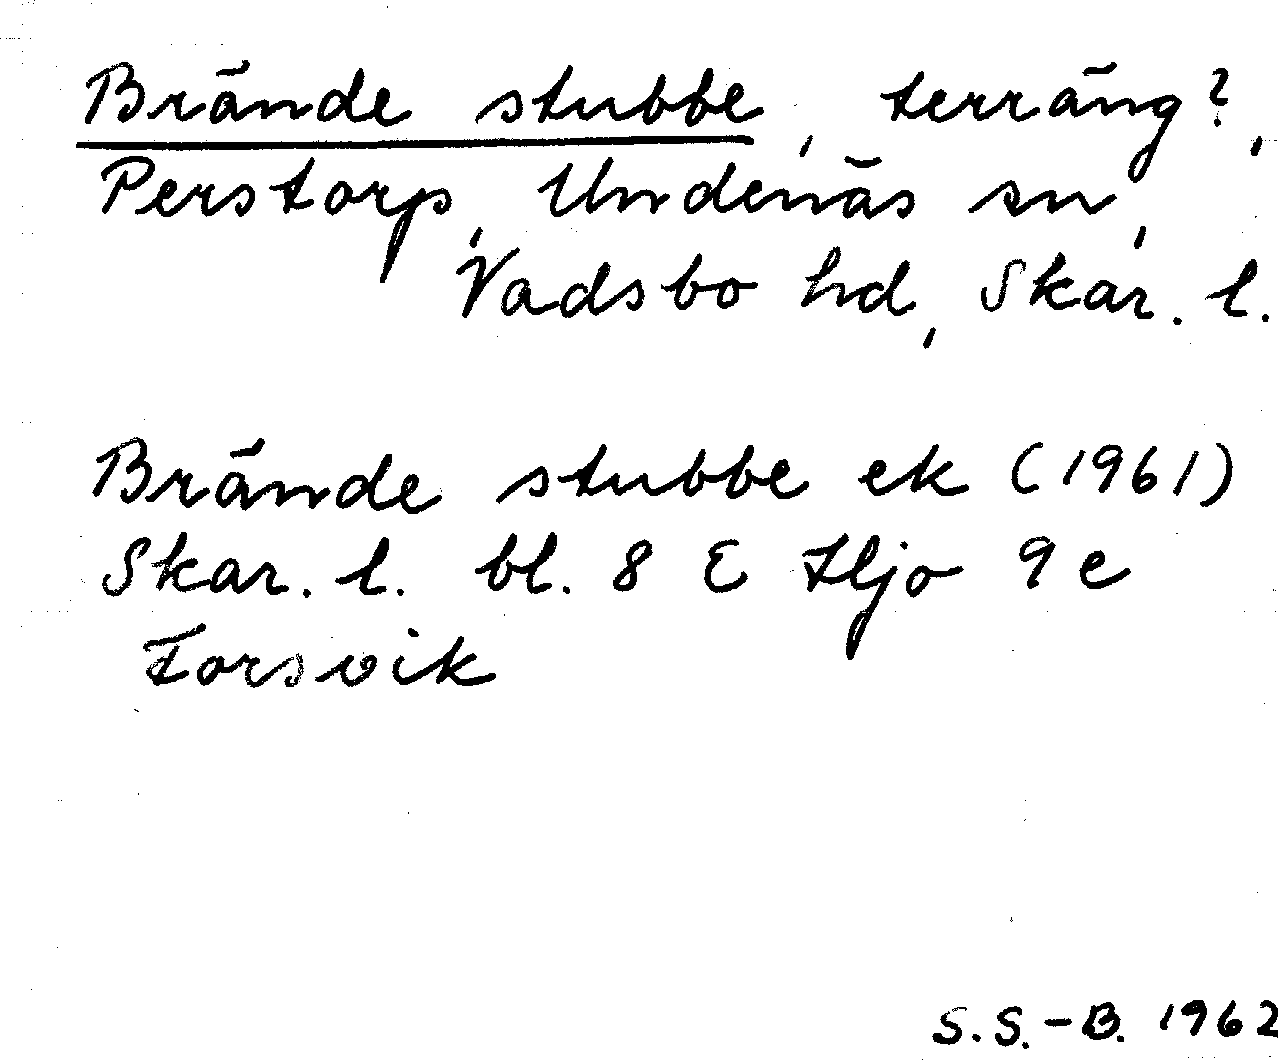 Brände stubbe, terräng?,
Perstorp, Undenäs sn,
Vadsbo hd, Skar. l.
Brände stubbe ek (1961)
Skar. l. bl. 8 E Hjo 9 e
Forsvik
S.S.-B. 1962